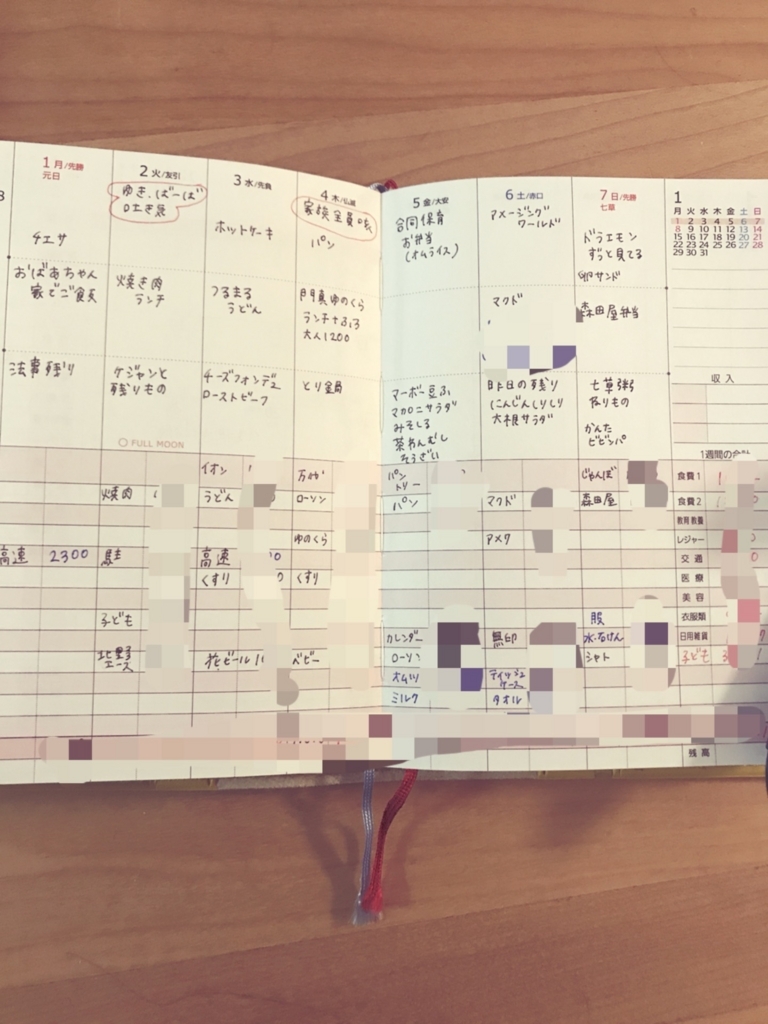 1 月/先勝
元日
チエサ
おばあちゃん
家でご食天
法事残り
高速 2300
2 火/友引
ゆき、ばーば
焼き肉
ランチ
ケジャンと
残りもの
FULL MOON
焼肉
駐
子ども
北野
エース
3 水/先負
ホットケーキ
つるまる
うどん
チーズフォンデュ
ローストビーフ
イオン
うどん
高速
くすり
花ビール
4 木/仏滅
家族全員
パン
門真ゆのくら
ランチ+ふろ
大人1200
とり全局
万代
ローソン
ゆのくら
くすり
ベビー
5 金/大安
合同保育
お弁当
(オムライス)
マーボー豆ふ
マカロニサラダ
みそしる
茶わんむし
そうざい
パン
トリー
パン
カレンダー
ローソ
オムツ
ミルク
6 土/赤口
アメージング
ワールド
マクド
昨日の残り
にんじんしりしり
大根サラダ
マクド
アメク
無印
ティッシュ
ケース
タオル
7 日/先勝
七草
ドラエモン
ずっと見てる
卵サンド
森田屋弁当
七草粥
残りもの
かんた
ビビンパ
じゃんぼ
森田屋
服
水・石けん
シャト
1
月 火 水 木 金 土 日
1 2 3 4 5 6 7
8 9 10 11 12 13 14
15 16 17 18 19 20 21
22 23 24 25 26 27 28
29 30 31
収入
1週間の合計
食費1
食費2
教育教養
レジャー
交通
医療
美容
衣服類
日用雑貨
子ども
残高